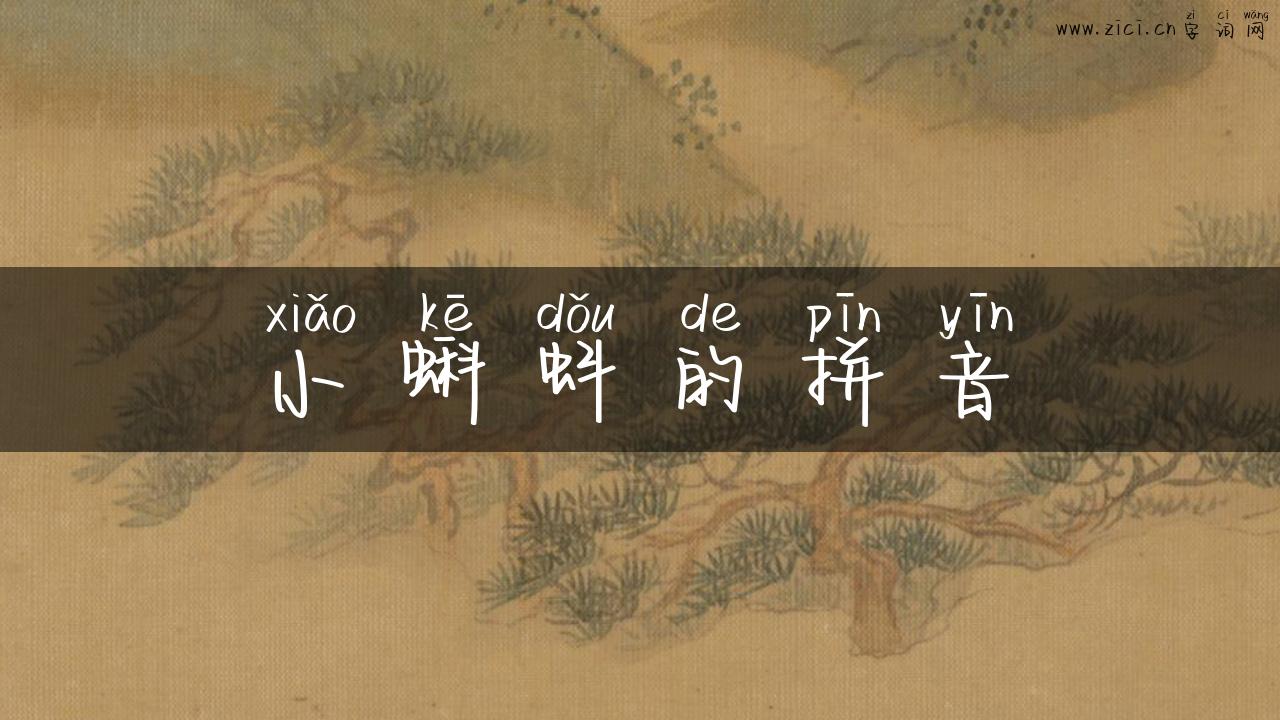 zì cí wǎng
www.zici.cn字词网
xiǎo kē dǒu de pīn yīn
小蝌蚪的拼音